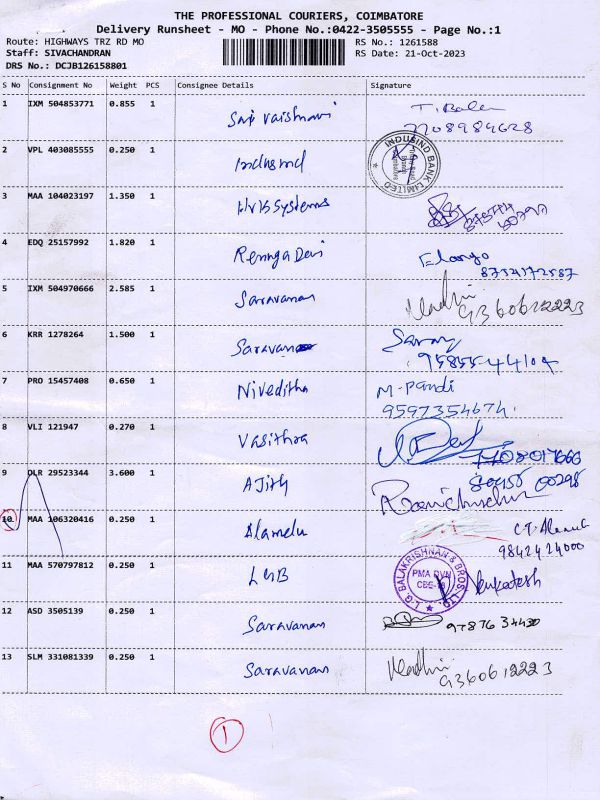 THE PROFESSIONAL COURIERS, COIMBATORE
Delivery Runsheet - MO - Phone No.:0422-3505555 - Page No.:1
Route: HIGHWAYS TRZ RD MO
RS No.: 1261588
Staff: SIVACHANDRAN
RS Date: 21-Oct-2023
DRS No.: DCJB126158801
S No Consignment No Weight PCS Consignee Details Signature
1 IXM 504853771 0.855 1 Sai Vaishnavi T. Balan
7708989628
2 VPL 403085555 0.250 1 Indusind INDUSIND BANK LIMITED
3 MAA 104023197 1.350 1 HVBSystems
4 EDQ 25157992 1.820 1 Renuga Devi Elango
5 IXM 504970666 2.585 1 Saravanan Madhu
9360612223
6 KRR 1278264 1.500 1 Saravanan Saran
95855-44104
7 PRO 15457408 0.650 1 Niveditha M. Pandi
9597354674
8 VLI 121947 0.270 1 Vasithra
9 DLR 29523344 3.600 1 Ajith 80456 00298
Ravichandran
10 MAA 106320416 0.250 1 Alamelu C.T.
9842424000
11 MAA 570797812 0.250 1 LGB L.G. BALAKRISHNAN & BROS. LTD PMA DVN Venkatesh
12 ASD 3505139 0.250 1 Saravanan 97876 34430
13 SLM 331081339 0.250 1 Saravanan Madhu
9360612223
1